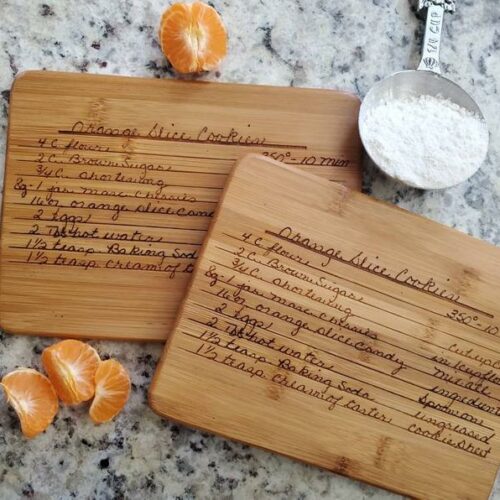 1/4 CUP
Orange Slice Cookies
350° - 10 min
4 C. flour
2 C. Brown Sugar
3/4 C. shortening
8oz - 1 jar Masc. Cherries
16oz orange slice cand
2 Eggs
2 TBS hot water
1 1/2 teasp Baking Soda
1 1/2 teasp. cream of tart
Orange Slice Cookies
350° - 10
4 C. flour
2 C. Brown Sugar
3/4 C. shortening
8g - 1 jar masc. cherries
16 oz orange slice candy
2 Eggs
2 TBS hot water
1 1/2 teasp Baking Soda
1 1/2 teasp. cream of tarter
Cut up c
in 1 cup flo
mix all
ingredien
spoon on
ungreased
cookie sheet